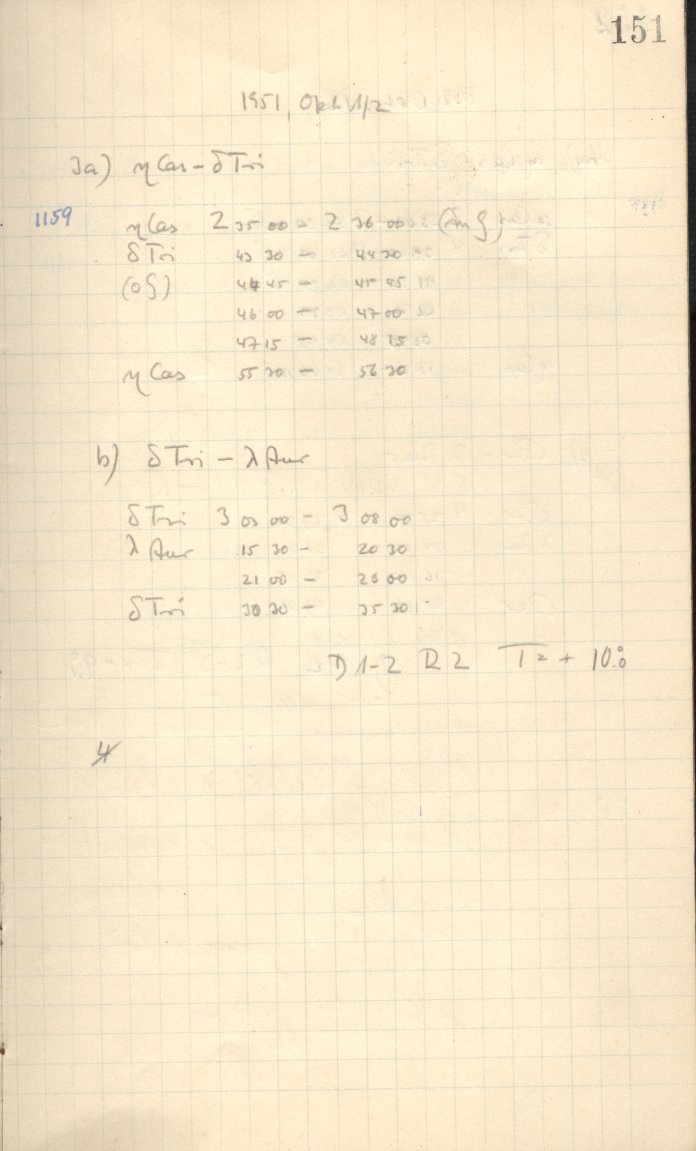 151
1951, Okt. 1/2
3a) η Cas – δ Tri
1159
η Cas 2 35 00 – 2 36 00
δ Tri 43 30 – 44 30
44 45 – 45 45
46 00 – 47 00
47 15 – 48 15
η Cas 55 30 – 56 30
b) δ Tri – λ Aur
δ Tri 3 03 00 – 3 08 00
λ Aur 15 30 – 20 30
21 00 – 26 00
δ Tri 30 30 – 35 30
D 1-2 R 2 T = + 10.0
4